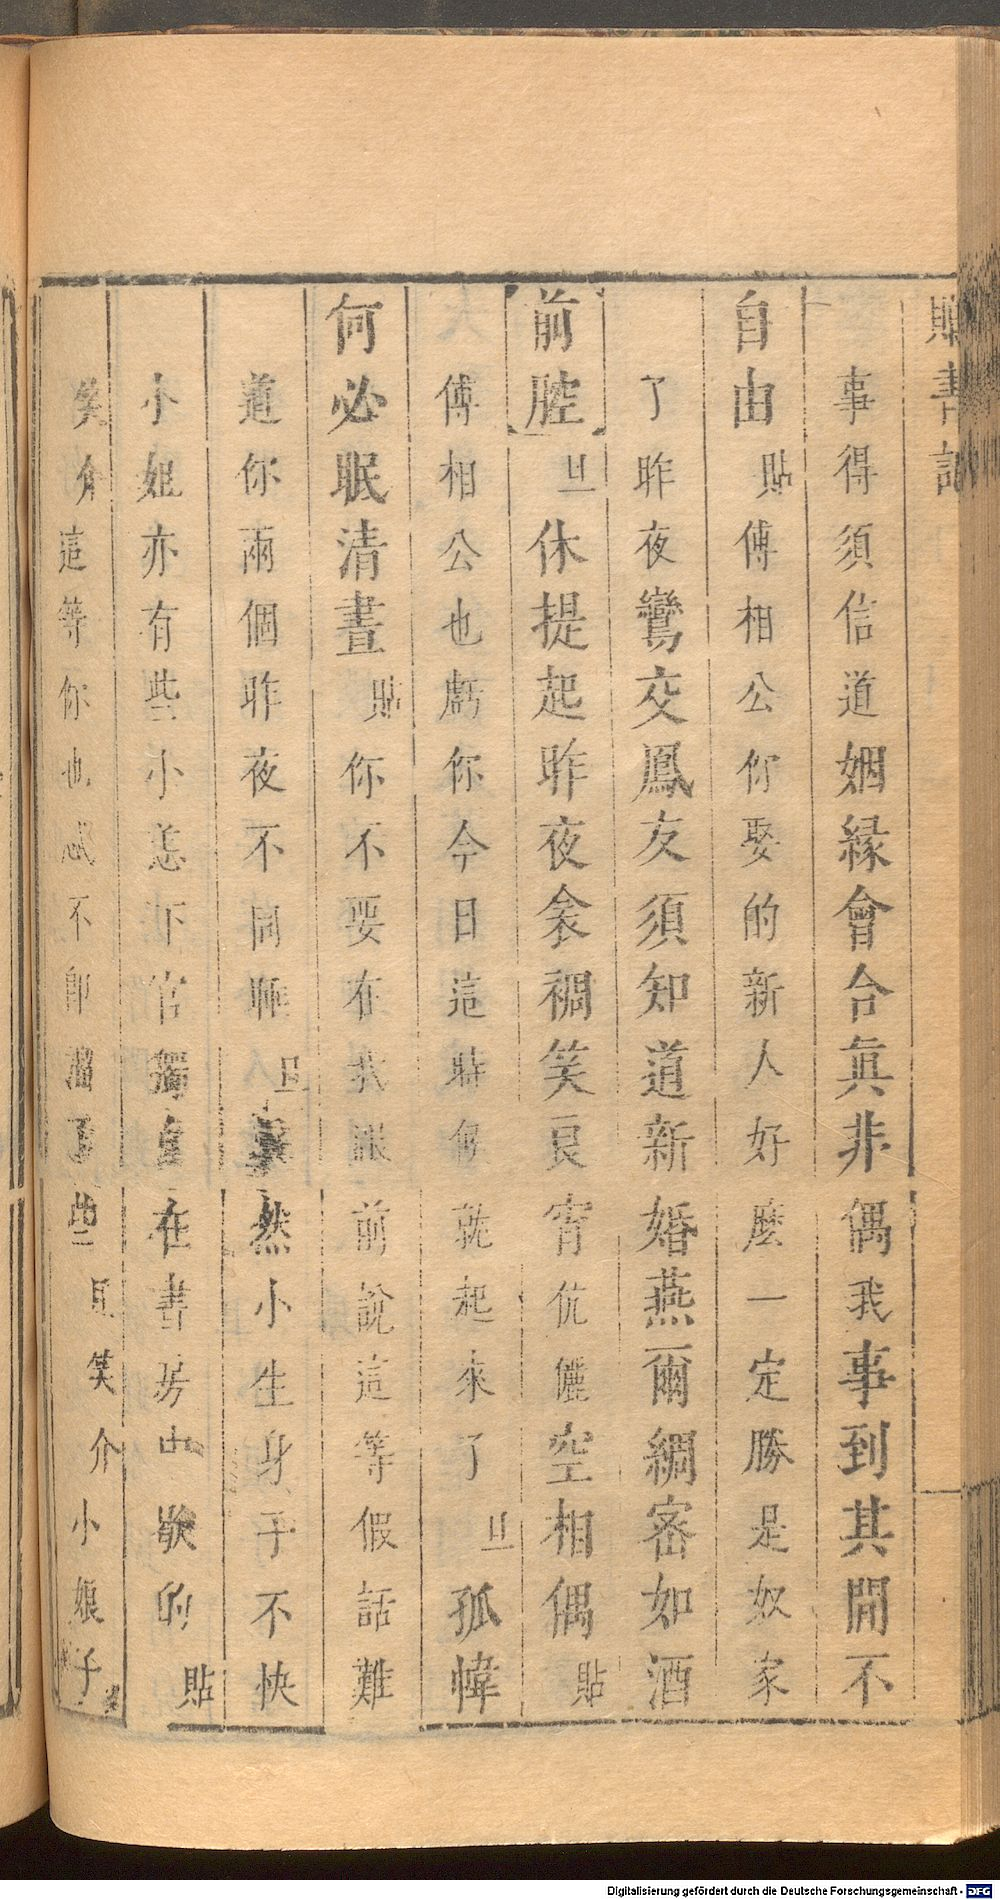 貼書記
事得須信道姻緣會合眞非偶我事到其間不
自由貼傅相公你娶的新人好麽一定勝是奴家
了昨夜鸞交鳳友須知道新婚燕爾綢密如酒
前腔旦休提起昨夜衾裯笑良宵伉儷空相偶貼
傅相公也虧你今日這時候就起來了旦孤幃
何必眠清晝貼你不要在我跟前說這等假話難
道你兩個昨夜不同睡旦 然小生身子不快
小姐亦有些小恙下官獨自在書房中歇的貼
笑介這等你也忒不 溜了些旦笑介小娘子
Digitalisierung gefördert durch die Deutsche Forschungsgemeinschaft - DFG